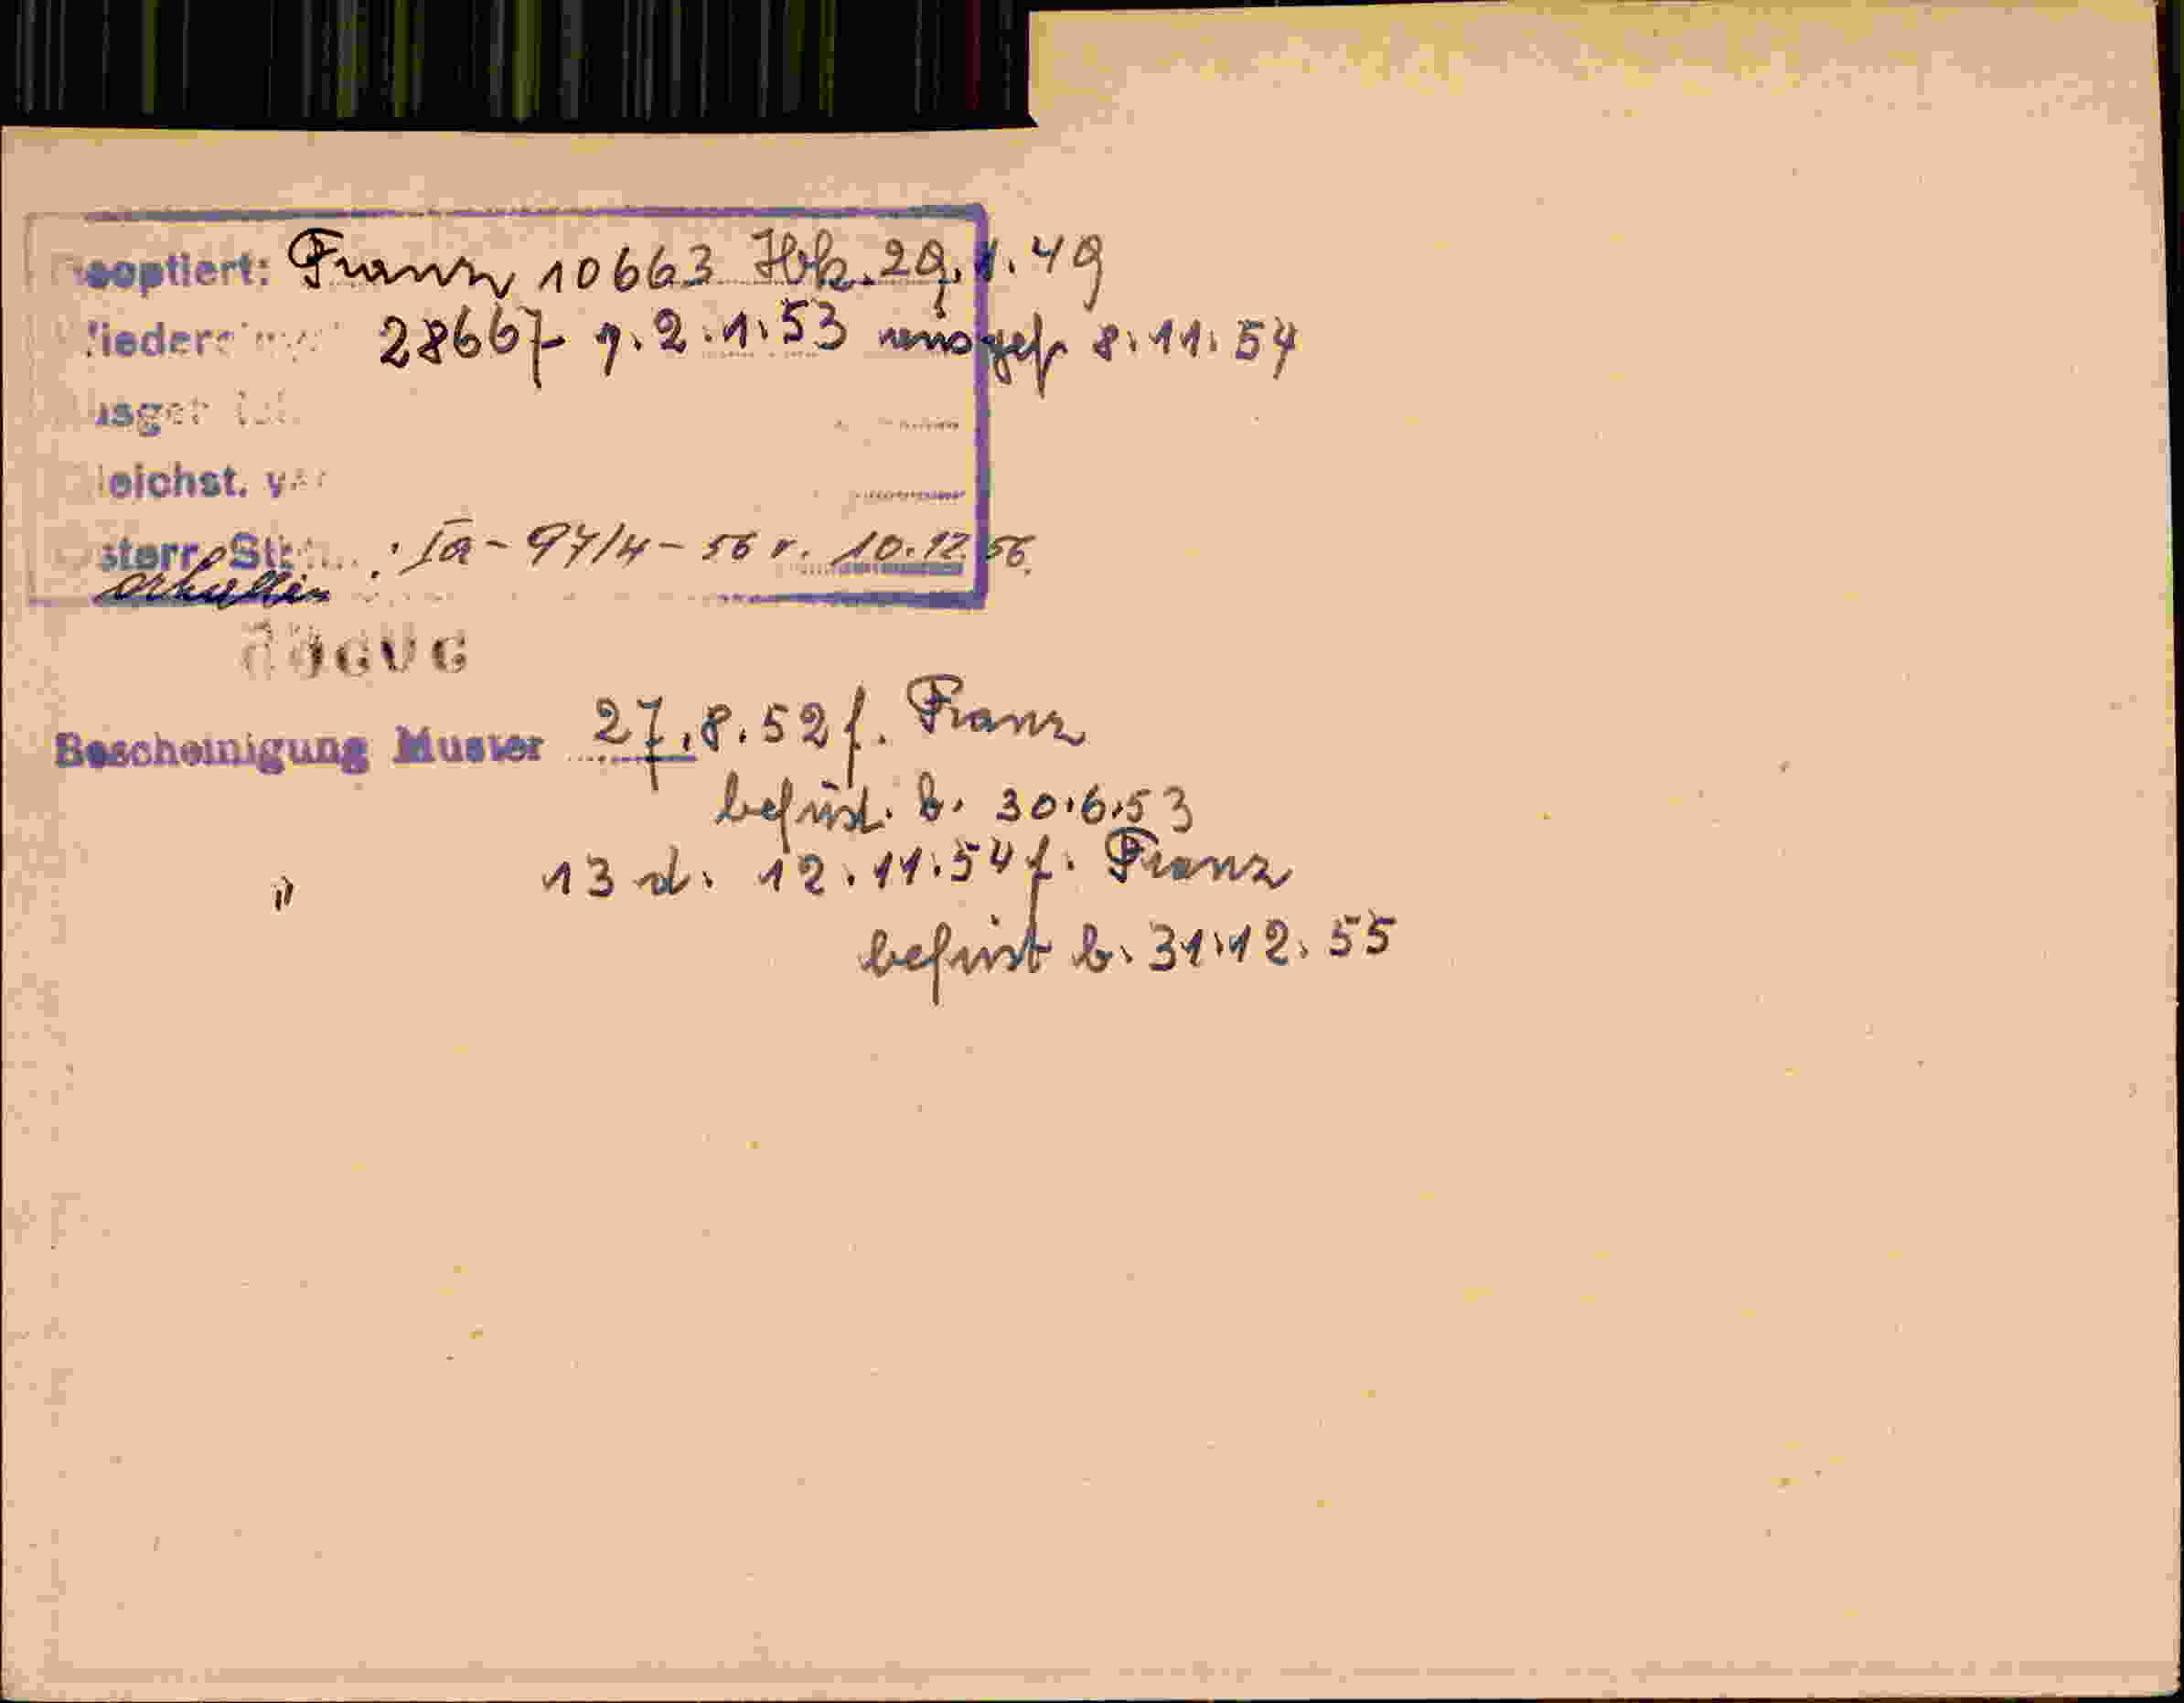 eoptiert: Franz 10663 Hbk. 29.1.49
iedere 28667 g. 2.1.53 ausgef 8.11.54
isge
eichst. v
sterr. St : Ia - 94/4 - 56 v. 10.12.56.
erhalten
GVG
Bescheinigung Muster 27.8.52 f. Franz
befrist. b. 30.6.53
" 13 d. 12.11.54 f. Franz
befrist b. 31.12.55